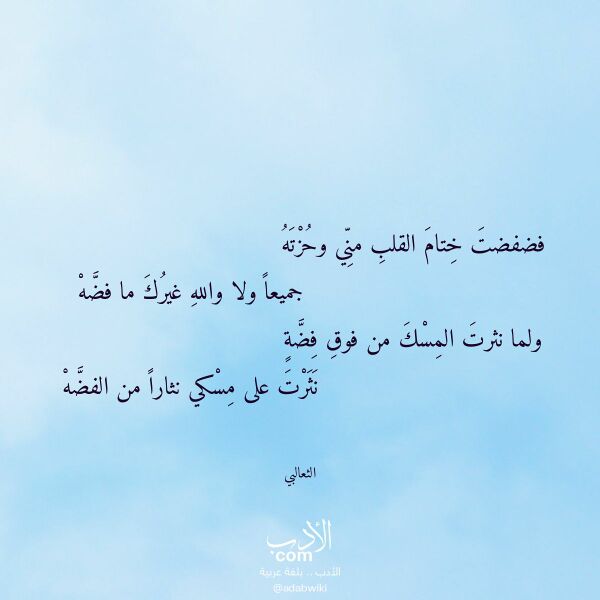 فضفضتَ خِتامَ القلبِ منِّي وحُزْتَهُ
جميعاً ولا واللهِ غيرُكَ ما فضَّهْ
ولما نثرتَ المِسْكَ من فوقِ فِضَّةٍ
نَثَرْتَ على مِسْكي نثاراً من الفضَّهْ
الثعالبي
الأدب
.com
الأدب .. بلغة عربية
@adabwiki